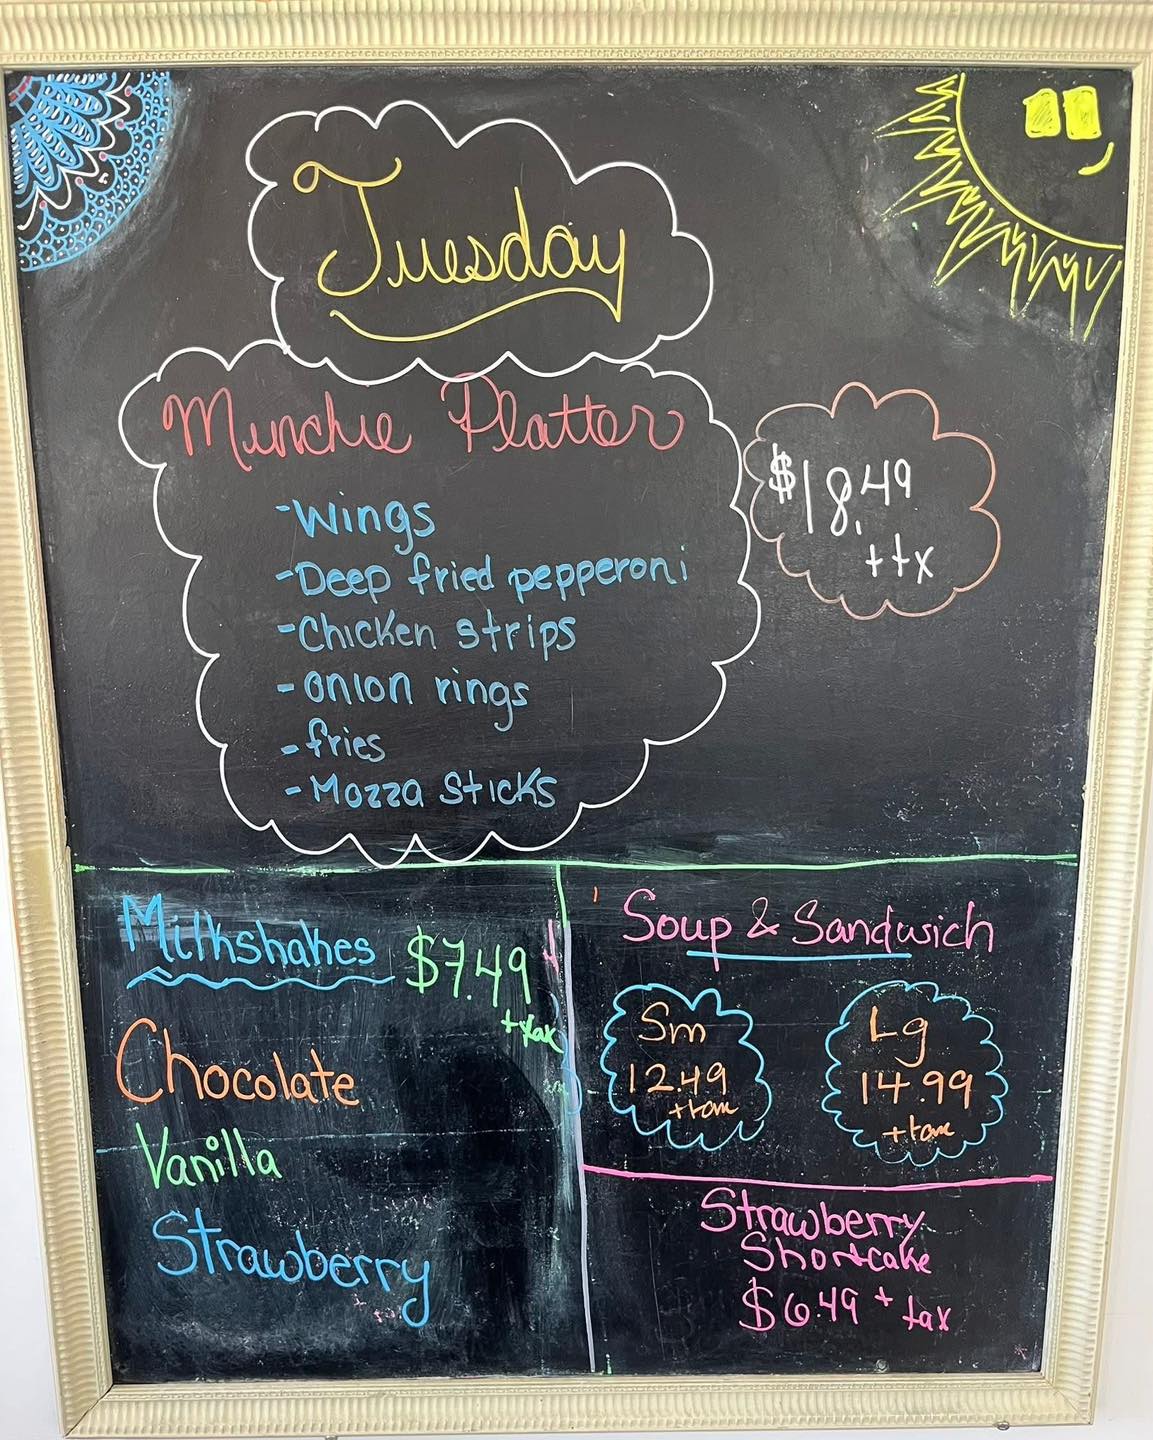 Tuesday
Munchie Platter
$18.49
+tx
-Wings
-Deep fried pepperoni
-Chicken strips
-onion rings
-fries
-Mozza sticks
Milkshakes $7.49
+tax
Chocolate
Vanilla
Strawberry
Soup & Sandwich
Sm
12.49
+tax
Lg
14.99
+tax
Strawberry
Shortcake
$6.49 + tax